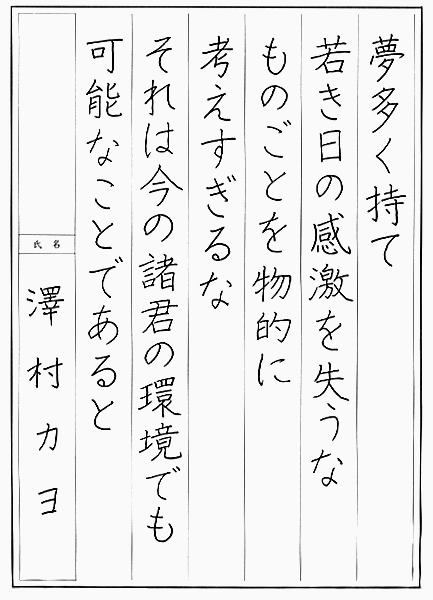 夢多く持て
若き日の感激を失うな
ものごとを物的に
考えすぎるな
それは今の諸君の環境でも
可能なことであると
氏名
澤村カヨ